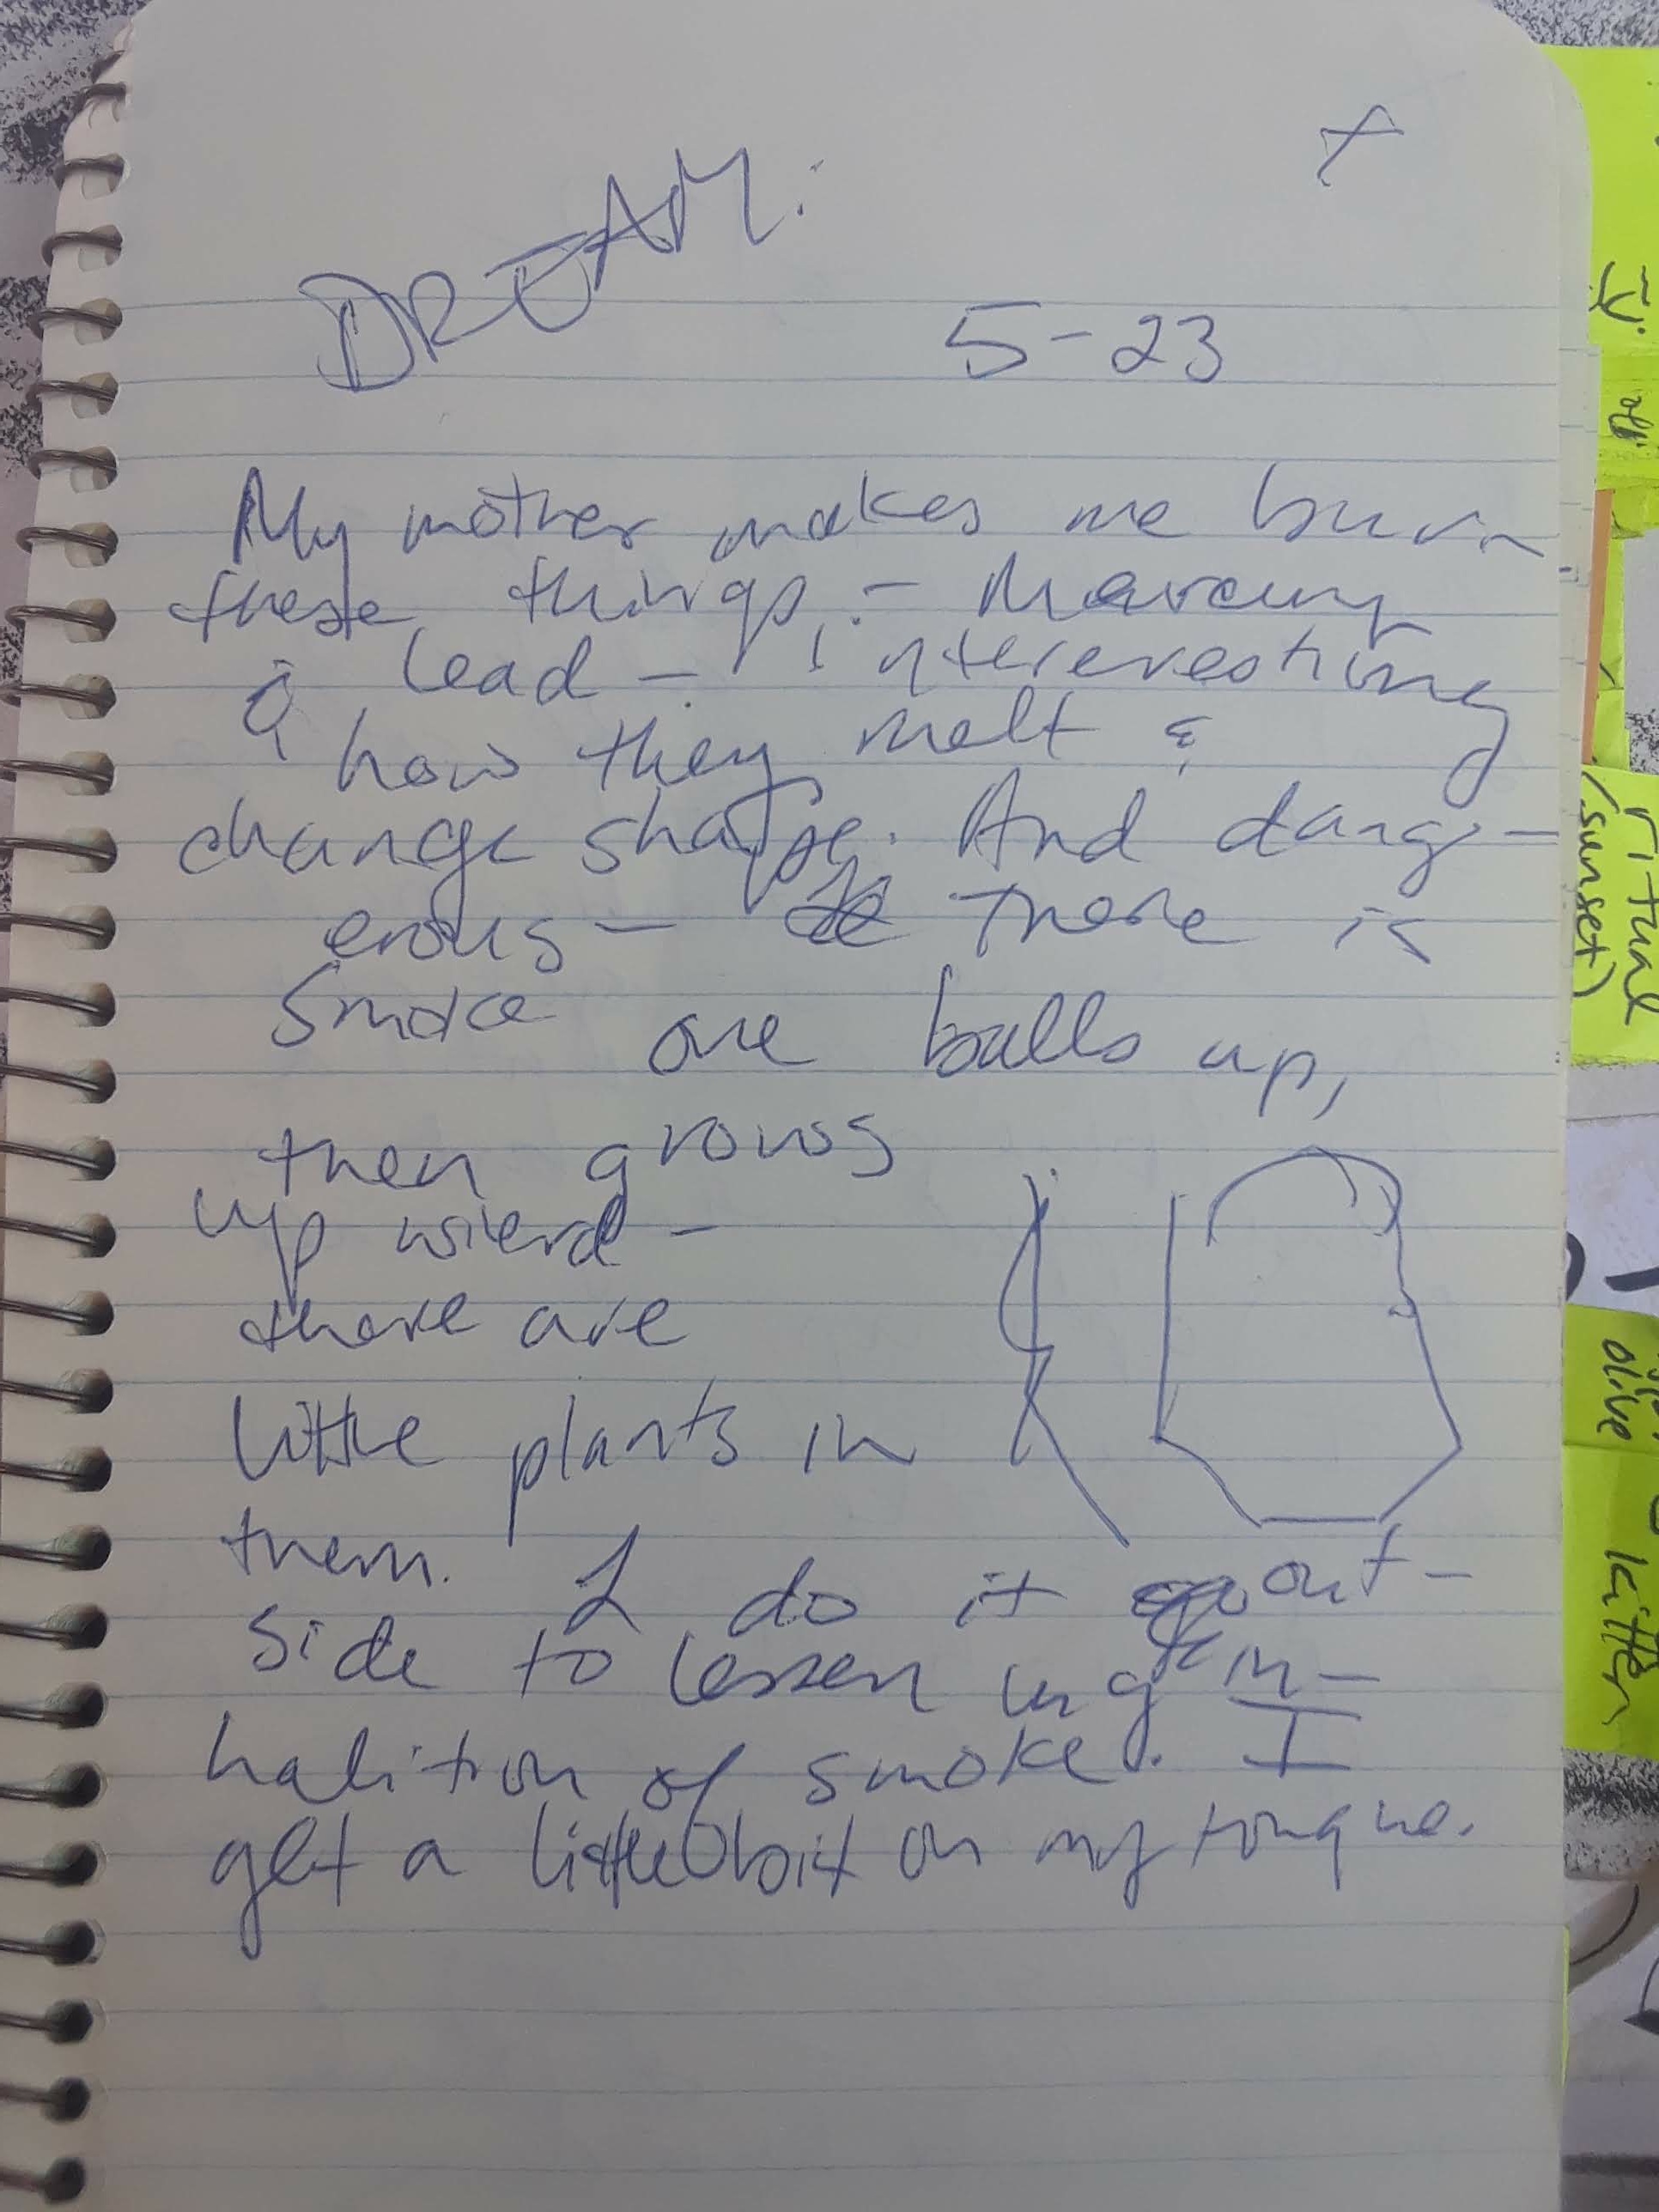 DREAM:
5-23
My mother makes me burn
these things, - Mercury
& lead - interevesting
how they melt &
change shape. And dang-
erous - there is
smoke one balls up,
then grows
up wierd -
there are
little plants in
them. I do it out-
side to lessen ing in-
halition of smoke. I
get a little bit on my tongue.
ritual
(sunset)
olive
kitten